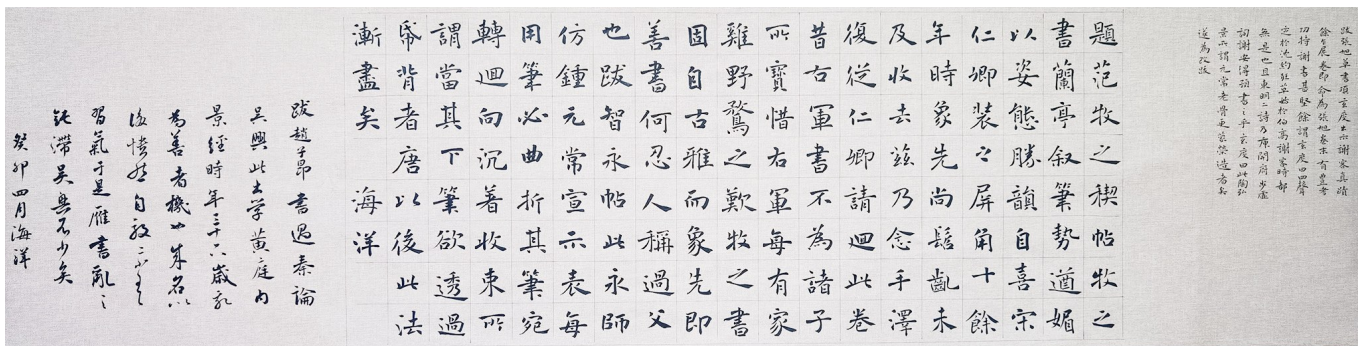 跋張旭草書項玄度出示謝客真蹟
餘乍展卷即命為張旭卷末有豐考
功持謝書甚堅餘謂玄度曰四聲
定於沈約狂草始於伯高謝客時都
無是也且東明二詩乃庾開府步虛
詞謝安得預書之乎玄度曰此陶弘
景所謂元常老骨再蒙榮造者矣
遂為改跋
題范牧之稧帖牧之
書蘭亭叙筆勢遒媚
以姿態勝韻自喜宋
仁卿裝之屏角十餘
年時象先尚髫齔未
及收去茲乃念手澤
復從仁卿請迴此卷
昔古軍書不為諸子
所寶惜右軍每有家
雞野鶩之歎牧之書
固自古雅而象先即
善書何忍人稱過父
也跋智永帖此永師
仿鍾元常宣示表每
用筆必曲折其筆宛
轉迴向沉著收束所
謂當其下筆欲透過
帋背者唐以後此法
漸盡矣 海洋
跋趙子昂書過秦論
吳興此書學黃庭內
景經時年三十八歲
為善者機也 名以
後 自
習氣于是雁書亂之
滯吳興不少矣
癸卯四月海洋